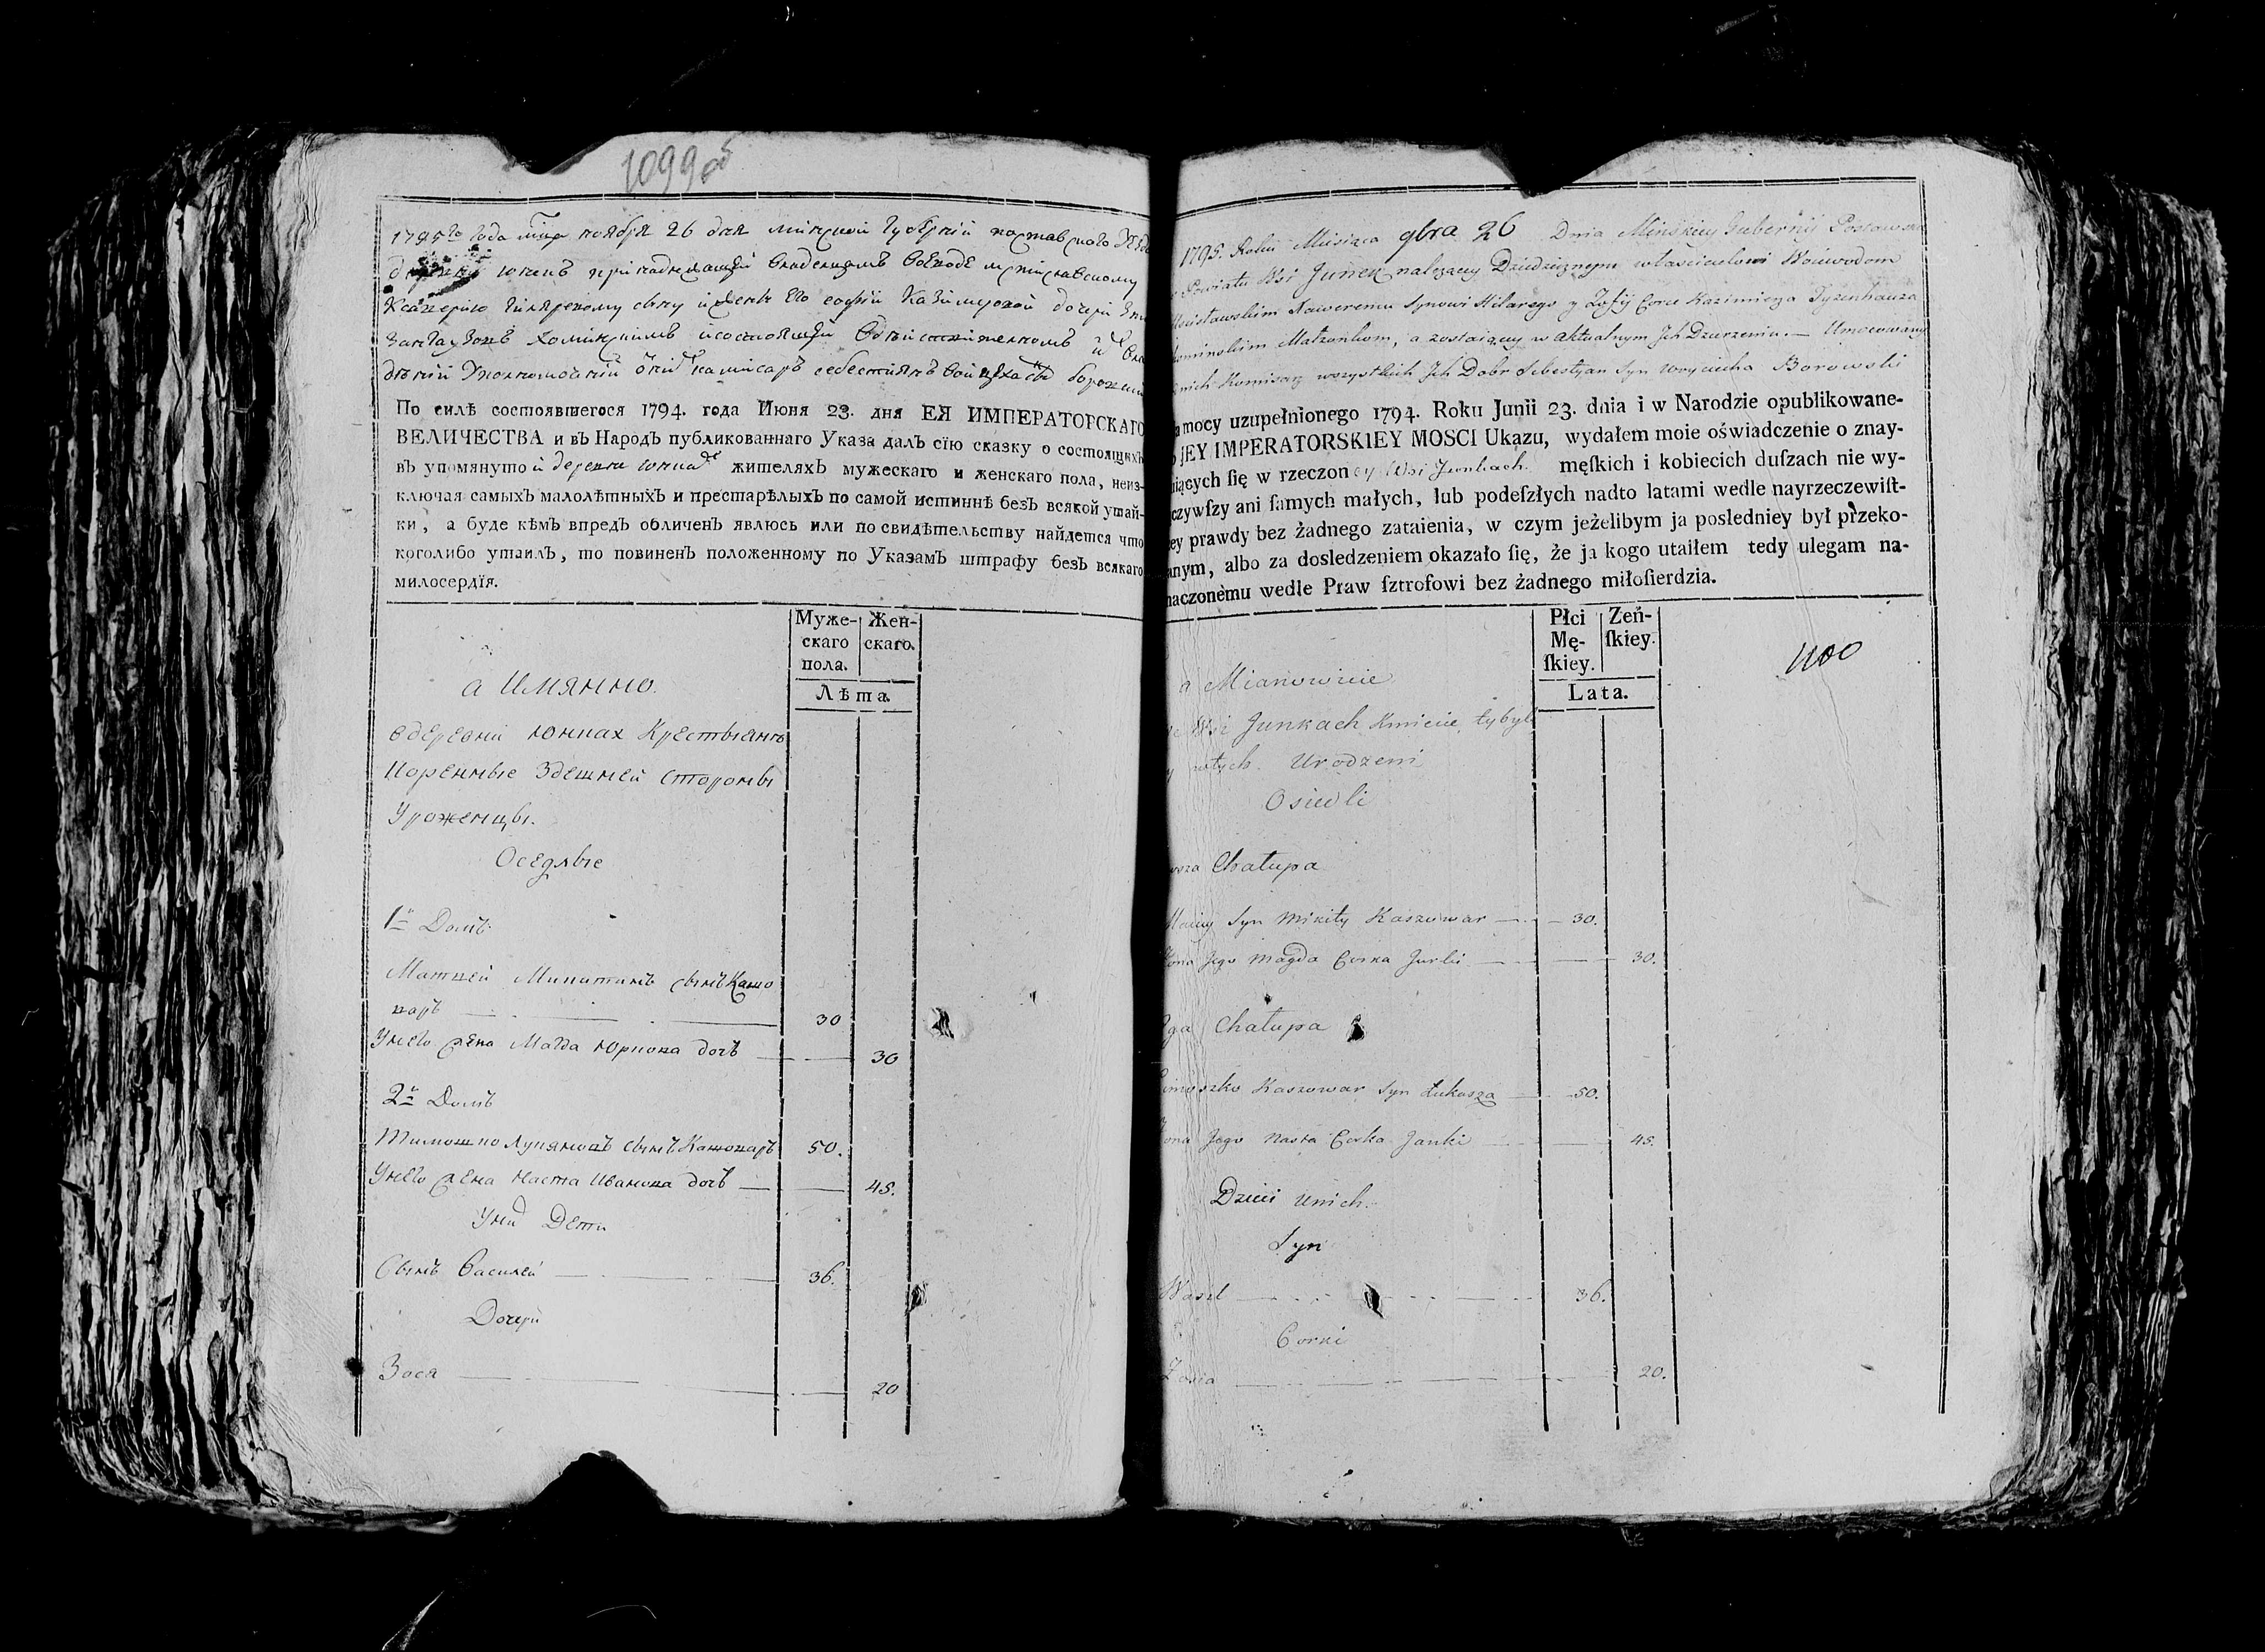 1099 об
1795го года мца ноября 26 дня минской губернии поставского
деревни юнекъ принадлежащей владельцамъ воеводе мстиславскому
Ксаверию гилярскому сыну и жене его софии Казимеровой дочери
хоминскимъ и состоящей
камисаръ себестиянъ войцеха сынъ
По силѣ состоявшегося 1794. года Июня 23. дня ЕЯ ИМПЕРАТОРСКАГО
ВЕЛИЧЕСТВА и въ Народъ публикованнаго Указа далъ сїю сказку о состоящихъ
въ упомянутой деревни юнкахъ жителяхъ мужескаго и женскаго пола, неиз-
ключая самыхъ малолѣтныхъ и престарѣлыхъ по самой истиннѣ безъ всякой утай-
ки, а буде кѣмъ впредъ обличенъ явлюсь или по свидѣтельству найдется что
коголибо утаилъ, то повиненъ положенному по Указамъ штрафу безъ всякаго
милосердїя.
Муже-
скаго
пола.
Жен-
скаго.
Лѣта.
а Имянно.
в деревни юнках Крестьянъ
Коренные Здешней Стороны
Уроженцы.
Оседлые
1й Домъ
Матвей Микитинъ сынъ Кашо
варъ 30
У него жена Магда юркова дочь 30
2й Домъ
Тимошко Лукяновъ сынъ Кашоваръ 50.
У него жена Наста Иванова дочь 45.
У них Дети
Сынъ Василей 36.
Дочери
Зося 20
1795. Roku Miesiąca 9bra 26 Dnia Minskiey Gubernij Postawsk
Powiatu Wsi Junek należący Dziedzicznym właścicielowi Woiewodom
Mscisławskim Xaweremu Synowi Hilarego y Zofij Corce Kazimierza Tyzenhauza
Chominskim Małżonkom, a zostaiącey w aktualnym Jch Dzierżeniu.— Umocowany
nich Komisarz wszystkich Jch Dobr Sebestyan Syn Woyciecha Borowski
mocy uzupełnionego 1794. Roku Junii 23. dnia i w Narodzie opublikowane-
JEY IMPERATORSKIEY MOSCI Ukazu, wydałem moie oświadczenie o znay-
iących ſię w rzeczoney Wsi Junkach męſkich i kobiecich duſzach nie wy-
czywſzy ani ſamych małych, lub podeſzłych nadto latami wedle nayrzeczewiſt-
ey prawdy bez żadnego zataienia, w czym jeżelibym ja posledniey był przeko-
anym, albo za dosledzeniem okazało ſię, że ja kogo utaiłem tedy ulegam na-
naczonemu wedle Praw ſztrofowi bez żadnego miłoſierdzia.
Płci
Mę-
ſkiey.
Zeń-
ſkiey.
Lata.
1100
a Mianowicie
Wsi Junkach Kmiecie, tybyl
Urodzeni
Osiedli
Chałupa
Maciey Syn Mikity Kaszowar 30.
Zona Jego Magda Corka Jurki 30.
2ga Chałupa
Timoszko Kaszowar Syn Łukasza 50.
Zona Jego Nasta Corka Janki 45.
Dzieci unich.
Syn
Wasil 36.
Corki
Zosia 20.